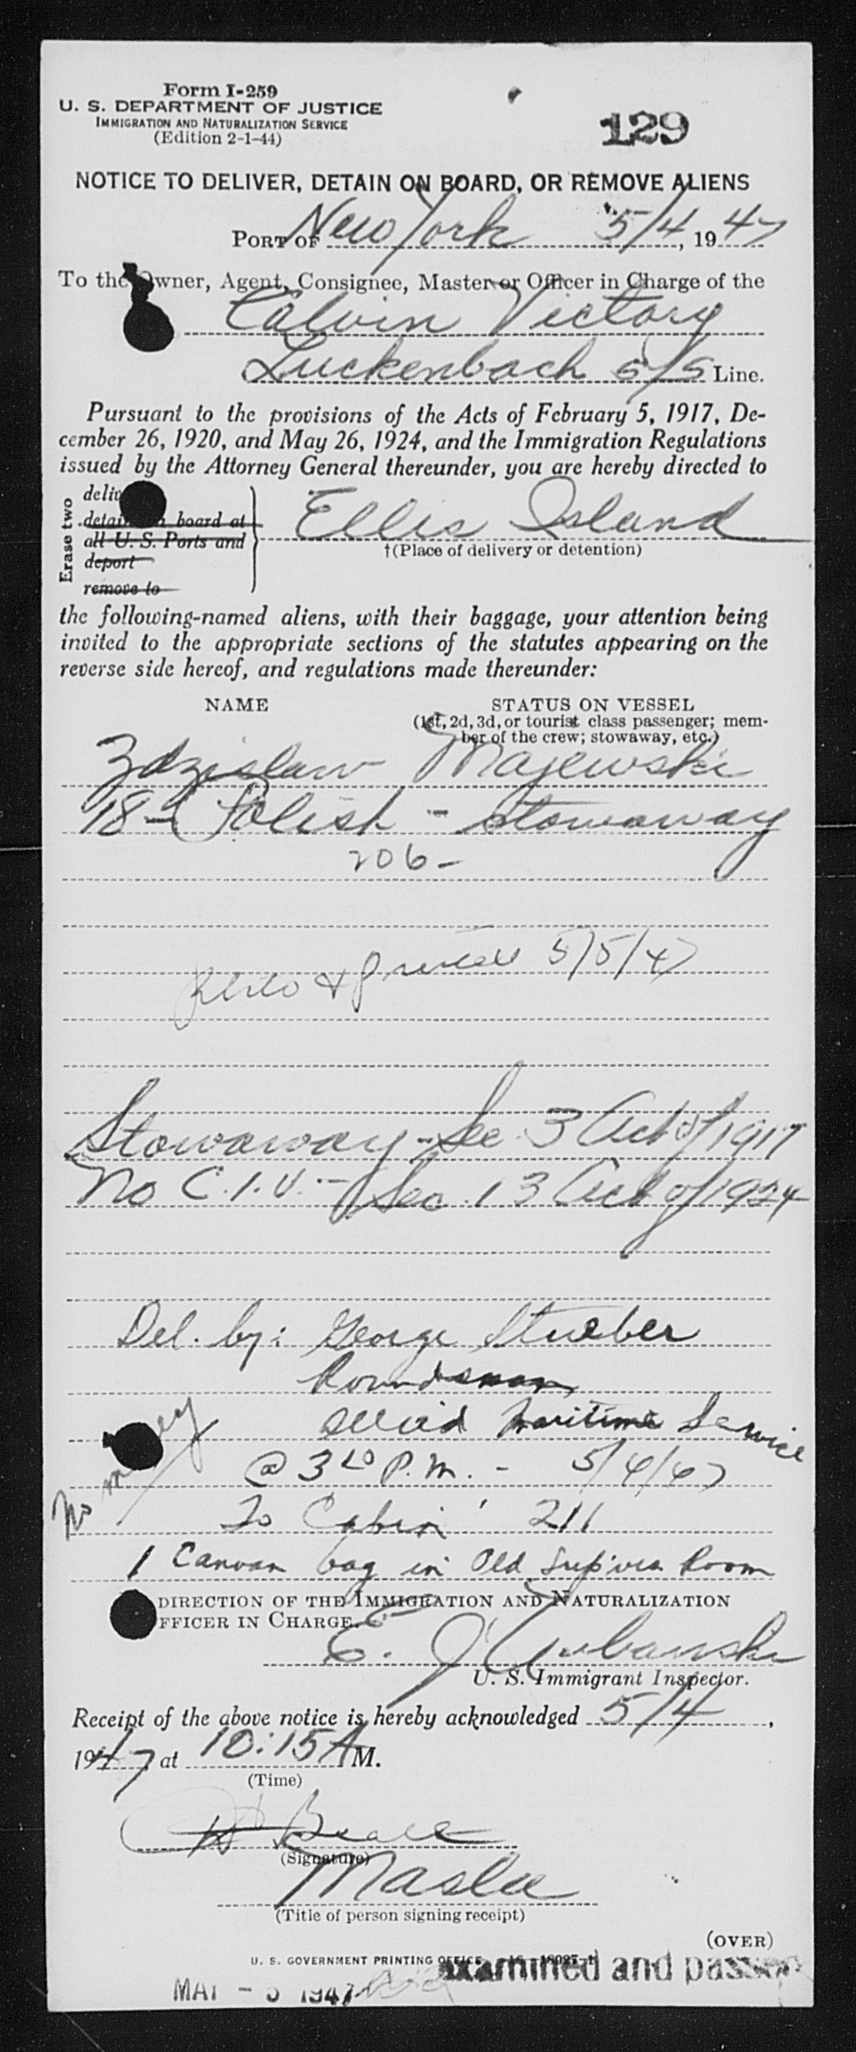 Form I-259
U. S. DEPARTMENT OF JUSTICE
IMMIGRATION AND NATURALIZATION SERVICE
(Edition 2-1-44)
129
NOTICE TO DELIVER, DETAIN ON BOARD, OR REMOVE ALIENS
PORT OF New York 5/4, 1947
To the Owner, Agent, Consignee, Master or Officer in Charge of the
Calvin Victory
Luckenbach S/S Line.
Pursuant to the provisions of the Acts of February 5, 1917, De-
cember 26, 1920, and May 26, 1924, and the Immigration Regulations
issued by the Attorney General thereunder, you are hereby directed to
Erase two
deliv
detain on board at
all U. S. Ports and
deport
remove to
Ellis Island
†(Place of delivery or detention)
the following-named aliens, with their baggage, your attention being
invited to the appropriate sections of the statutes appearing on the
reverse side hereof, and regulations made thereunder:
NAME STATUS ON VESSEL
(1st, 2d, 3d, or tourist class passenger; mem-
ber of the crew; stowaway, etc.)
Zdzislaw Majewski
18 - Polish - stowaway
206 -
5/5/47
Stowaway - Sec 3 Act of 1917
No C.I.V. - Sec. 13 Act of 1924
Del. by: George Stueber
Roundsman
Maritime Service
@ 3 P.M. - 5/4/47
No money
To Cabin 211
1 Canvas bag in Old Sup'vis Room
DIRECTION OF THE IMMIGRATION AND NATURALIZATION
FFICER IN CHARGE.
E. J.
U. S. Immigrant Inspector.
Receipt of the above notice is hereby acknowledged 5/4,
1947 at 10:15 A M.
(Time)
(Signature)
Master
(Title of person signing receipt)
(OVER)
U. S. GOVERNMENT PRINTING OFFICE
examined and passed
MAY - 5 1947